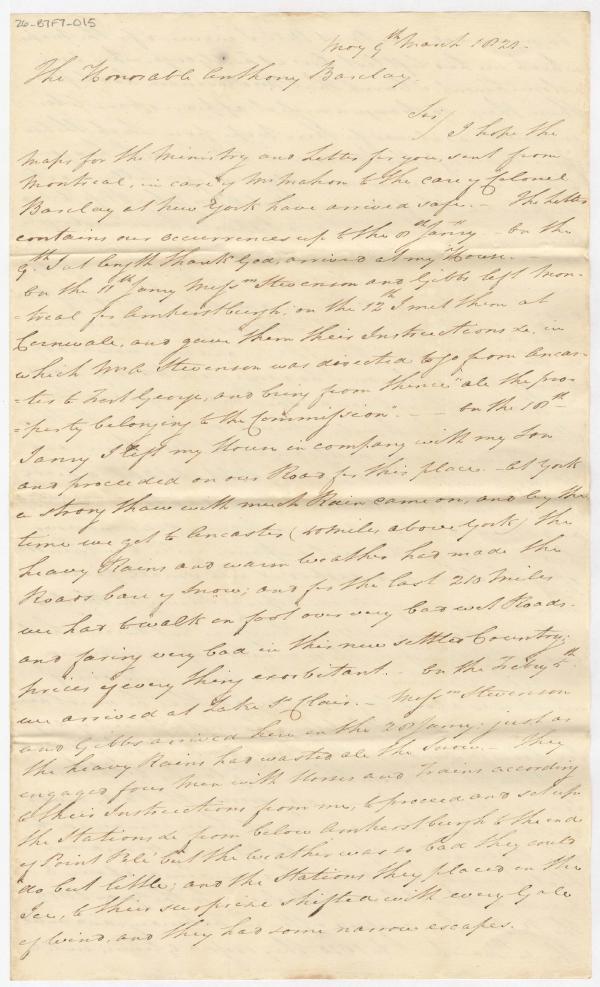 26-B7F7-015
Moy 9th March 1821.
The Honorable Anthony Barclay.
Sir/ I hope the
Maps for the Ministry and Letter for you, sent from
Montreal, in care of McMahon to the care of Colonel
Barclay at New York have arrived safe. – The Letter
contains our occurrences up to the 8th Janry – On the
9th I at length thank God, arrived at my House. –
On the 11th Janry Messrs Stevenson and Gibbs left Mon-
-treal for Amherstburgh; on the 12th I met them at
Cornwale, and gave them their Instructions &c, in
which Mr A. Stevenson was directed to go from Ancas-
-ter to Fort George, and bring from thence "all the pro-
-"perty belonging to the Commission". – – On the 18th
Janry I left my House in company with my Son
and proceeded on our Road for this place. – At York
a strong thaw with much Rain came on, and by the
time we got to Ancaster (40 miles above York) the
heavy Rains and warm weather had made the
Roads bare of Snow; and for the last 210 Miles
we had to walk on foot over very bad wet Roads.
and faring very bad in this new settled Country;
prices of every thing exorbitant. – On the Febry 5th
we arrived at Lake St Clair. – Messrs Stevenson
and Gibbs arrived here on the 28 Janry: just as
the heavy Rains had wasted all the Snow. – They
engaged four Men with Horses and Trains according
to their Instructions from me, to proceed and set up
the Stations &c from below Amherstburgh to the end
of Point Pelé but the weather was so bad they could
do but little; and the Stations they placed on the
Ice, to their surprize shifted with every Gale
of wind, and they had some narrow escapes.